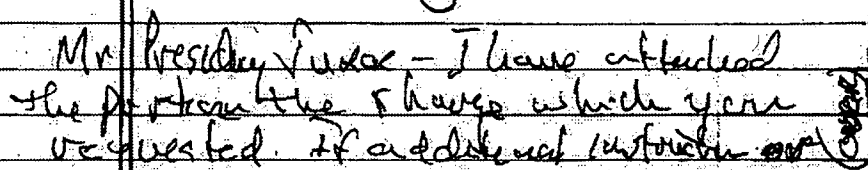 Mr Presiding Juror - I have attached
the portion the charge which you
requested. If additional instruction
(OVER)